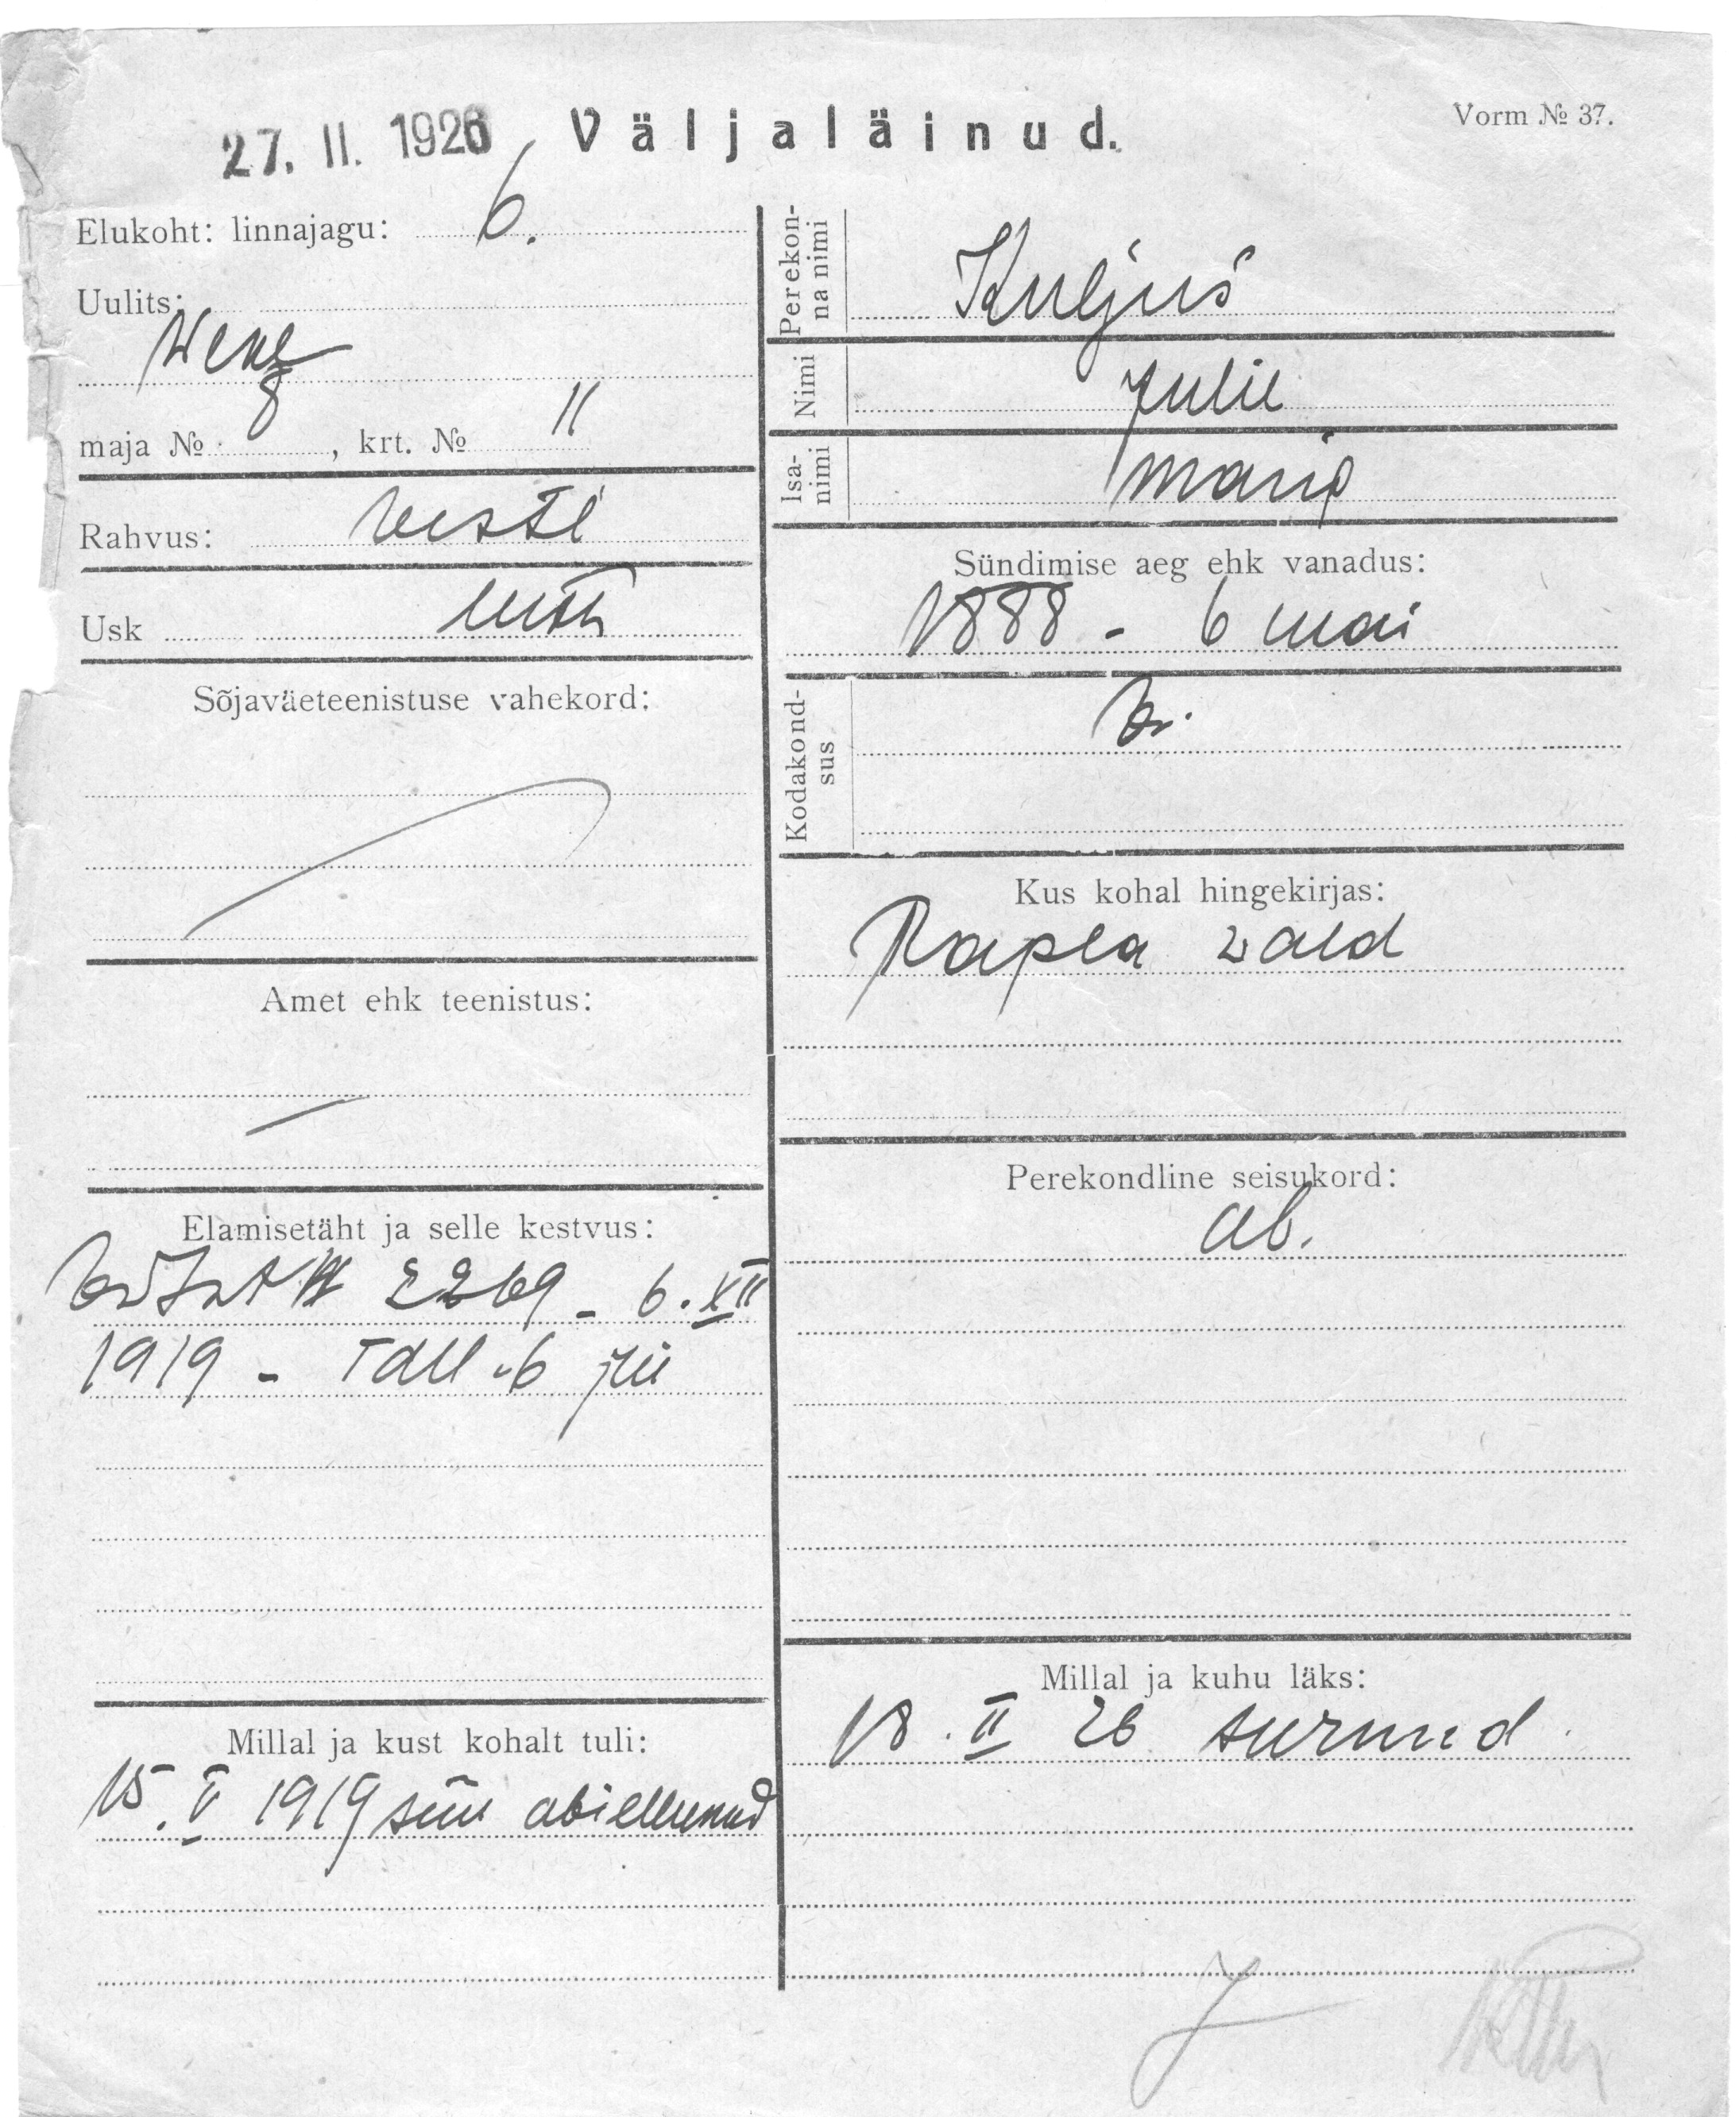 27. II. 1926 Väljaläinud.
Vorm № 37.
Elukoht: linnajagu: 6.
Uulits:
Wene
maja № 8, krt. № 11
Rahvus: eesti
Usk luth
Sõjaväeteenistuse vahekord:
Amet ehk teenistus:
Elamisetäht ja selle kestvus:
2269 - 6. XII
1919 - Tall. 6 jsk
Millal ja kust kohalt tuli:
15. V 1919 siin abiellunud
Perekonna nimi Kuljus
Nimi Julie
Isanimi
Sündimise aeg ehk vanadus:
1888 - 6 mai
Kodakondsus
Kus kohal hingekirjas:
Rapla wald
Perekondline seisukord:
ab.
Millal ja kuhu läks:
18. II 26 surnud.